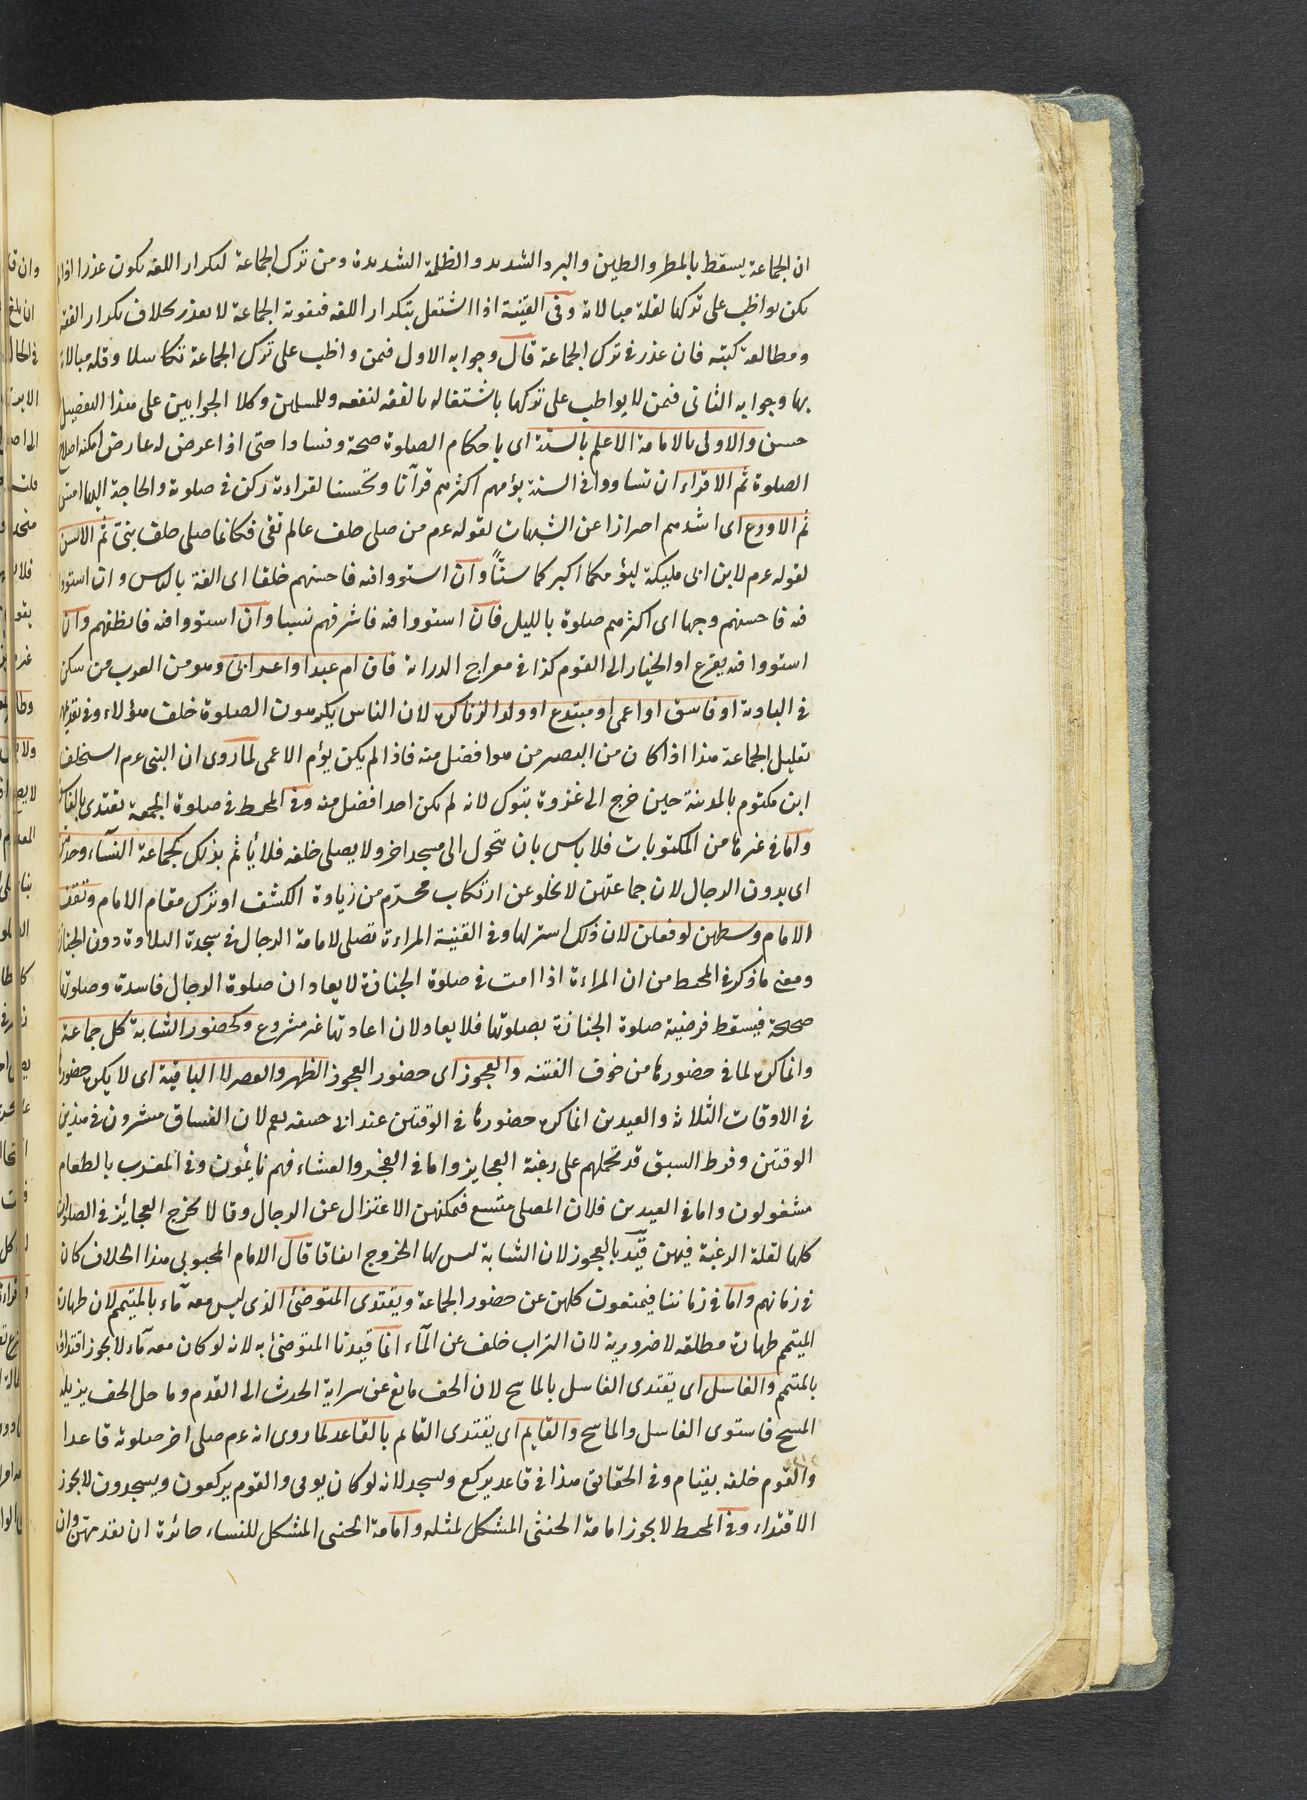 ان الجماعة يسقط بالمطر والطين والبرد الشديد والظلمة الشديدة ومن ترك الجماعة لتكرار اللغه يكون عذرا اذا لم
يكن يواظب على تركها لقلة مبالاة وفى القنية اذا اشتغل بتكرار اللغه فتفوته الجماعة لا يعذر بخلاف تكرار الفقه
ومطالعة كتبه فان عذر فى ترك الجماعة قال وجوابه الاول فيمن واظب على ترك الجماعة تكاسلا وقله مبالاة
بها وجوابه الثانى فيمن لا يواظب على تركها باشتغاله بالفقه لنفعه وللمسلمين وكلا الجوابين على هذا التفصيل
حسن والاولى بالامامة الاعلم بالسنة اى باحكام الصلوة صحة وفسادا حتى اذا عرض له عارض امكنه اصلاح
الصلوة ثم الاقراء ان تساووا فى السنة يؤمهم اكثرهم قرآنا وتحسينا لقراءة ركن فى صلوة والحاجة اليها امس
ثم الاورع اى اشدهم احرازا عن الشبهات لقوله عم من صلى خلف عالم تقى فكانما صلى خلف نبى ثم الاسن
لقوله عم لابن ابى مليكة ليؤمكما اكبركما سنًّا وان استووا فيه فاحسنهم خلقا اى الفة بالناس وان استووا
فيه فاحسنهم وجها اى اكثرهم صلوة بالليل فان استووا فيه فاشرفهم نسبا وان استووا فيه فانظفهم وان
استووا فيه يقرع او الخيار الى القوم كذا فى معراج الدراية فان ام عبد او اعرابى وهو من العرب من سكن
فى البادية او فاسق او اعمى او مبتدع او ولد الزنا كره لان الناس يكرهون الصلوة خلف هؤلاء وفى تقديمهم
تقليل الجماعة هذا اذا كان من البصير من هو افضل منه فاذا لم يكن يؤم الاعمى لما روى ان النبى عم استخلف
ابن مكتوم بالمدينة حين خرج الى غزوة تبوك لانه لم يكن احد افضل منه وفى المحيط فى صلوة الجمعة يقتدى بالفاسق
واما فى غيرها من المكتوبات فلا باس بان يتحول الى مسجد اخر ولا يصلى خلفه فلا يأثم بذلك كجماعة النسآء وحدهن
اى بدون الرجال لان جماعتهن لا يخلو عن ارتكاب محرّم من زيادة الكشف او ترك مقام الامام وتقف
الامام وسطهن لو فعلن لان ذلك استر لها وفى القنية المراءة تصلى لامامة الرجال فى سجدة التلاوة دون الجنازة
ومعنى ما ذكر فى المحيط من ان المراءة اذا امت فى صلوة الجنازة لا يعاد ان صلوة الرجال فاسدة وصلوتها
صحيحة فيسقط فرضية صلوة الجنازة بصلوتها فلا يعاد لان اعادتها غير مشروع وكحضور الشابة كل جماعة
وانما كره لما فى حضورها من خوف الفتنه والعجوز اى حضور العجوز الظهر والعصر لا الباقية اى لا يكره حضورها
فى الاوقات الثلاثة والعيدين انما كره حضورها فى الوقتين عند ابى حنيفه رحم لان الفساق منتشرون فى هذين
الوقتين وفرط السبق قد تحملهم على رغبة العجايز واما فى الفجر والعشاء فهم نايمون وفى المغرب بالطعام
مشغولون واما فى العيدين فلان المصلى متسع فيمكنهن الاعتزال عن الرجال وقالا يخرج العجائز فى الصلوات
كلها لقلة الرغبة فيهن قيّد بالعجوز لان الشابة ليس لها الخروج اتفاقا قال الامام المحبوبى هذا الخلاف كان
فى زمانهم واما فى زماننا فيمنعون كلهن عن حضور الجماعة ويقتدى المتوضئ الذى ليس معه مآء بالمتيمم لان طهارة
المتيمم طهارة مطلقه لا ضرورية لان التراب خلف عن المآء انما قيدنا المتوضئ به لانه لو كان معه مآء لا يجوز اقتداؤه
بالمتيمم والغاسل اى يقتدى الغاسل بالماسح لان الخف مانع عن سراية الحدث الى القدم وما حل الخف يزيله
المسح فاستوى الغاسل والماسح والقايم اى يقتدى القايم بالقاعد لما روى انه عم صلى اخر صلوته قاعدا
والقوم خلفه بقيام وفى الحقايق هذا فى قاعد يركع ويسجد لانه لو كان يومى والقوم يركعون ويسجدون لا يجوز
الاقتداء وفى المحيط لا يجوز امامة الخنثى المشكل لمثله وامامة الخنثى المشكل للنساء جائزة ان تقدمهن وان